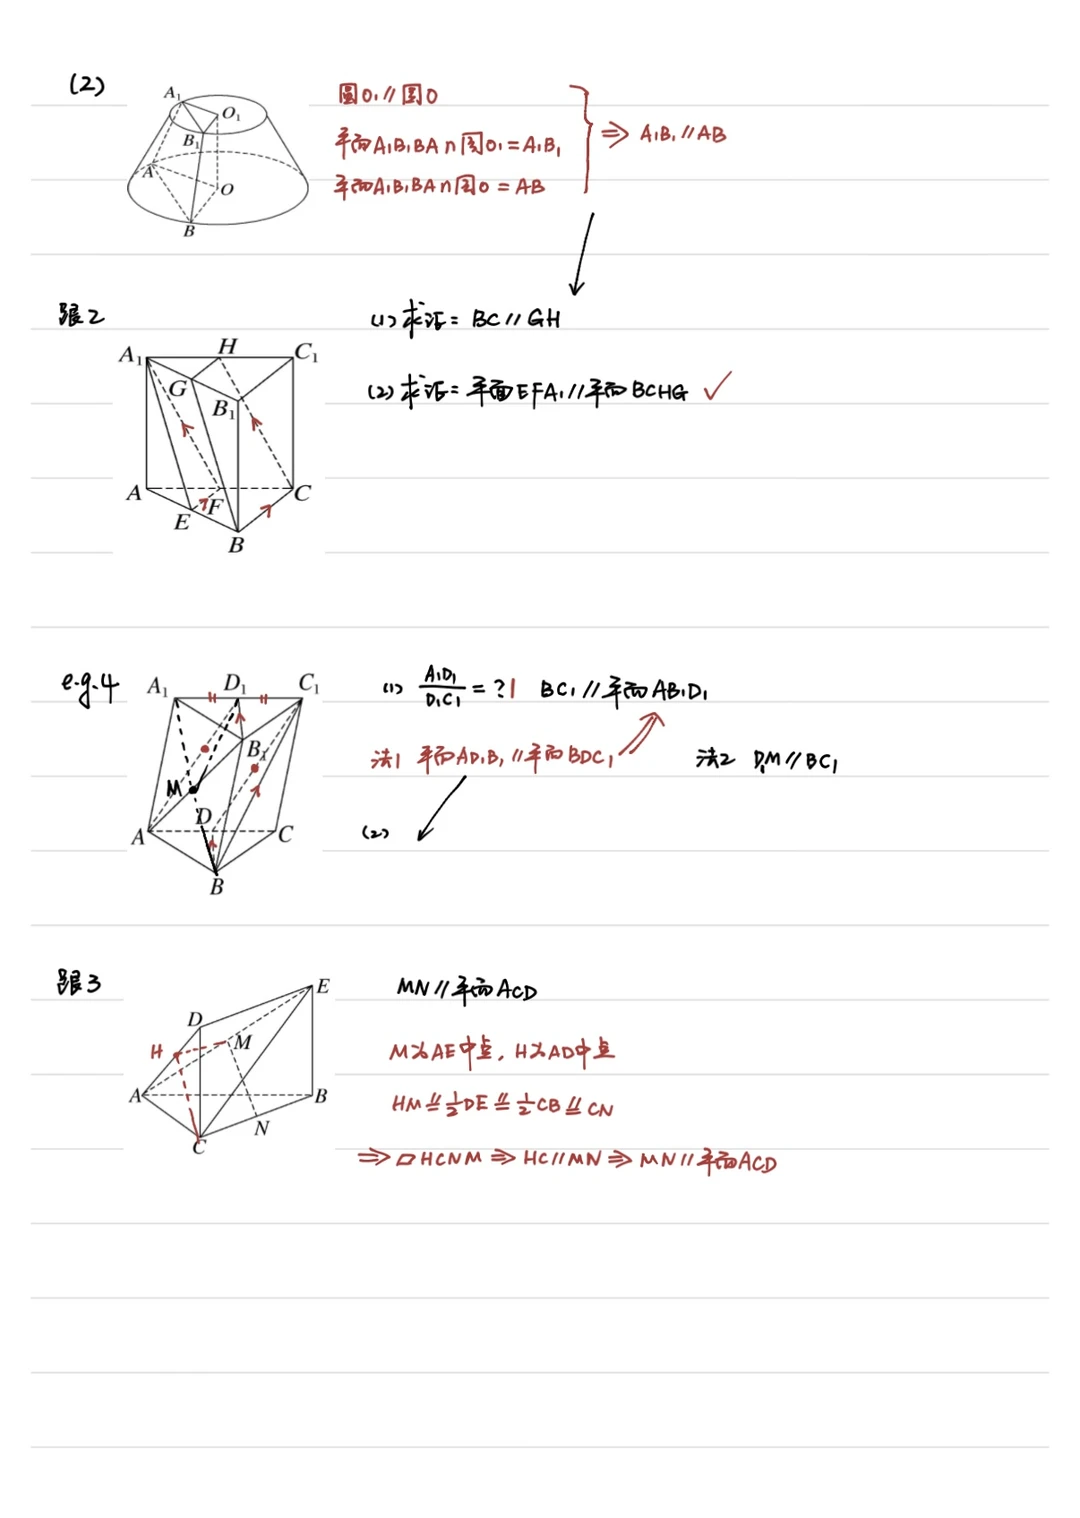 (2)
A₁
O₁
B₁
A
O
B
圆O₁∥圆O
平面A₁B₁BA∩圆O₁=A₁B₁
平面A₁B₁BA∩圆O=AB
⇒ A₁B₁∥AB
跟2
A₁ H C₁
G
B₁
A F C
E
B
(1)求证: BC∥GH
(2)求证: 平面EFA₁∥平面BCHG ✓
e.g.4
A₁ D₁ C₁
B₁
M
D
A C
B
(1) A₁D₁/D₁C₁ = ? 1 BC₁∥平面AB₁D₁
法1 平面AD₁B₁∥平面BDC₁
法2 D₁M∥BC₁
(2)
跟3
E
D
H M
A B
N
C
MN∥平面ACD
M为AE中点, H为AD中点
HM ∥= ½DE ∥= ½CB ∥= CN
⇒ ▱HCNM ⇒ HC∥MN ⇒ MN∥平面ACD